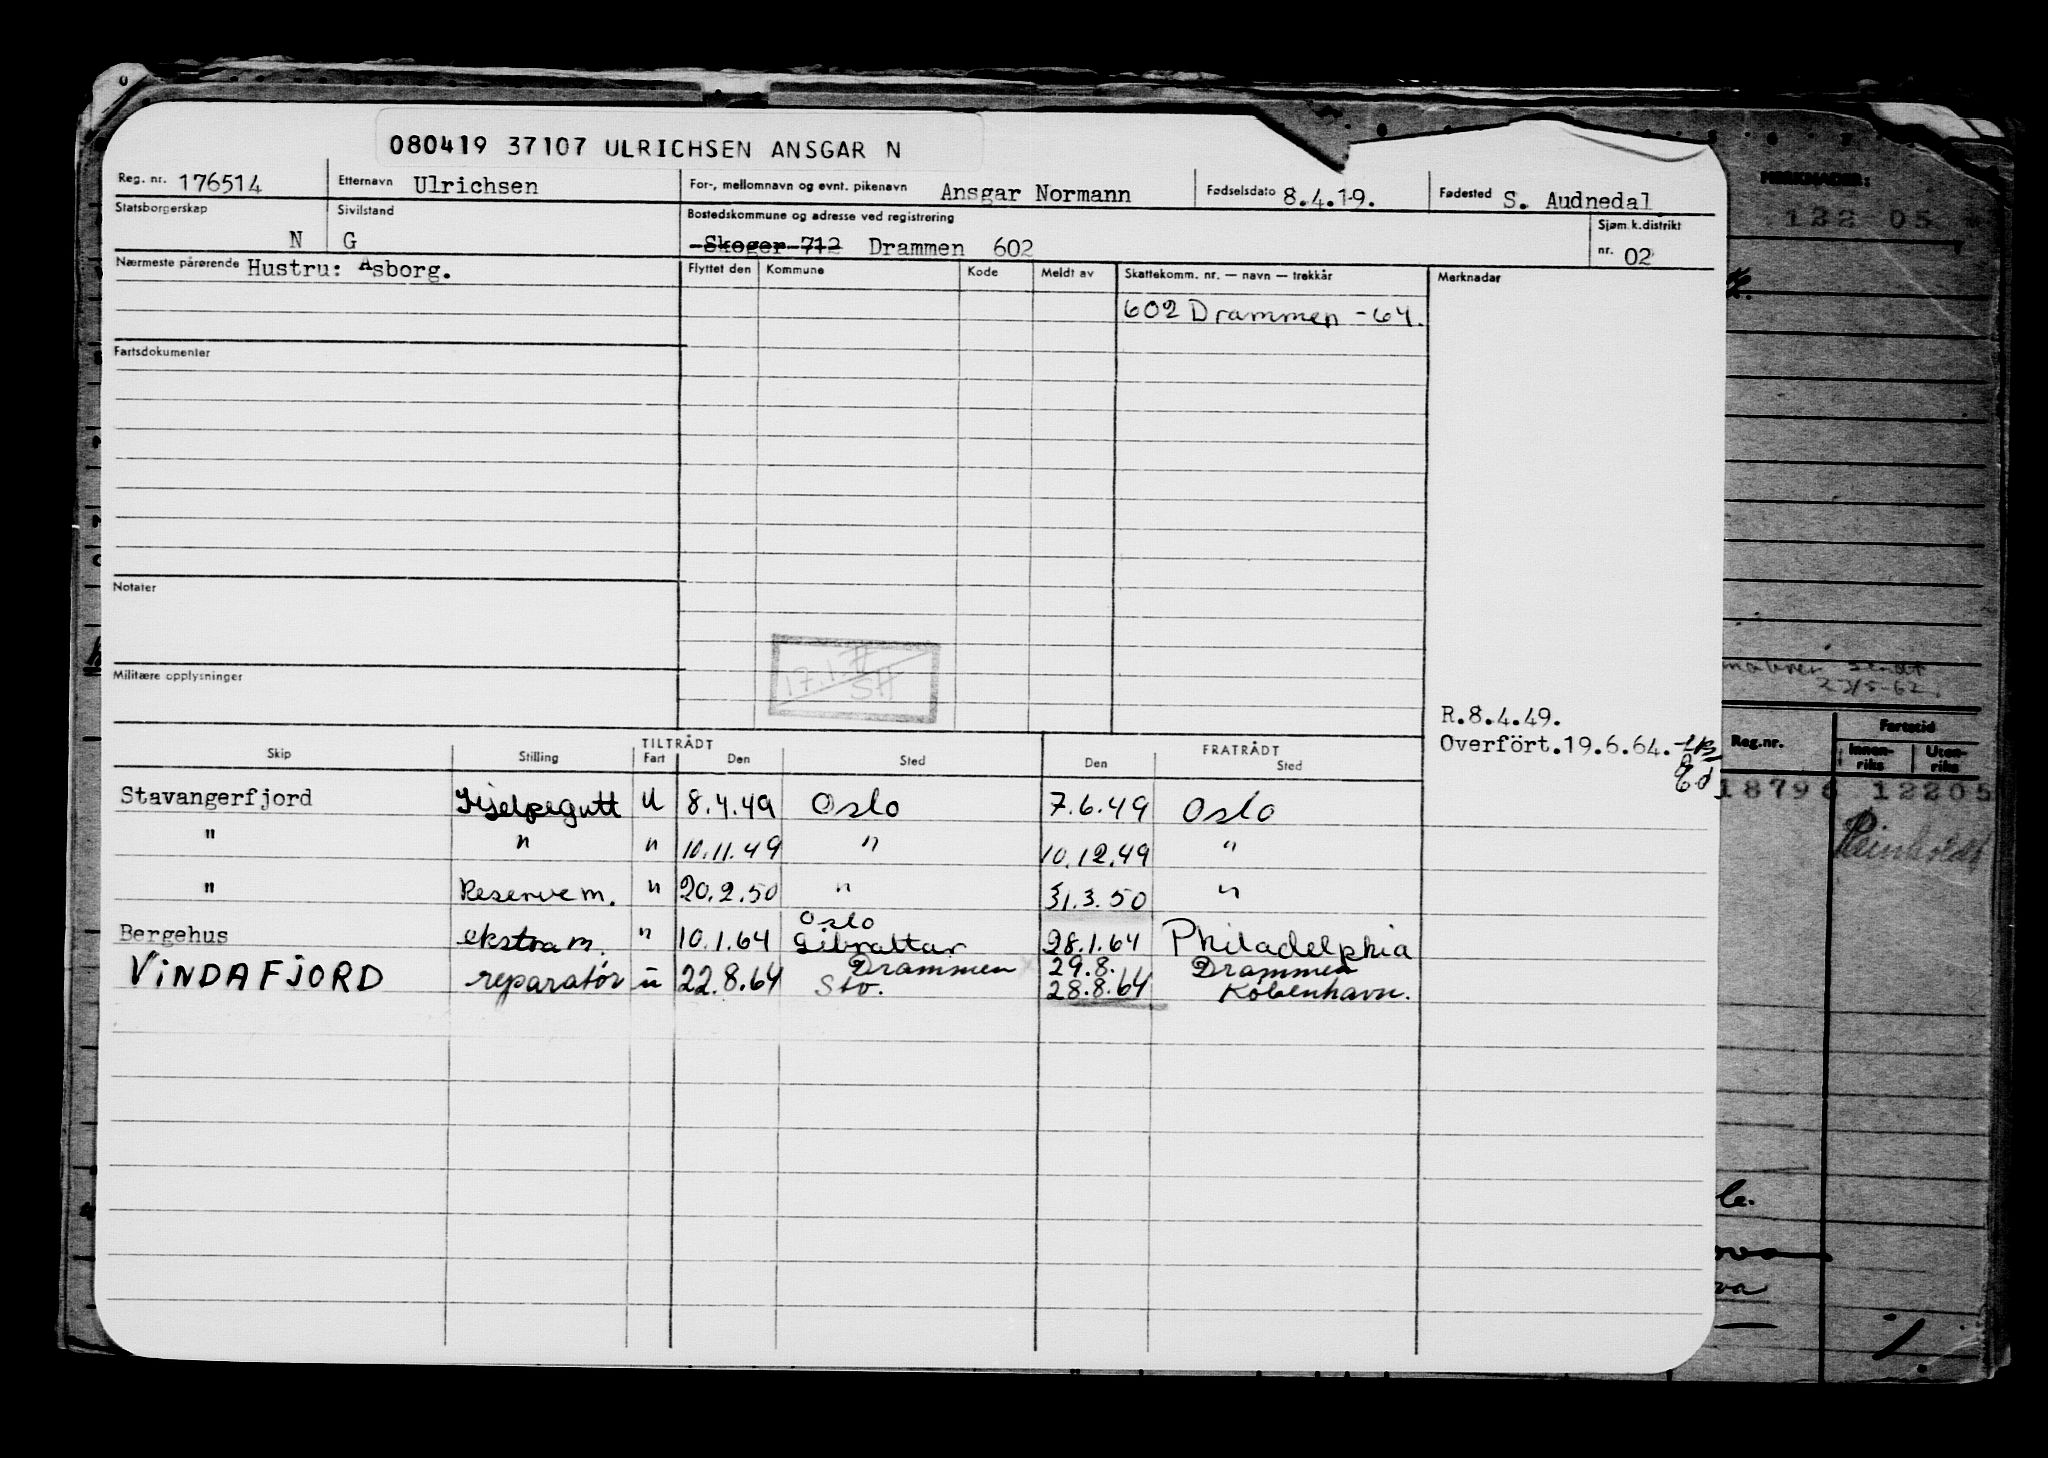 080419 37107 ULRICHSEN ANSGAR N
Reg. nr. 176514 Etternavn Ulrichsen For-, mellomnavn og evnt. pikenavn Ansgar Normann Fødselsdato 8.4.19. Fødested S. Audnedal
Statsborgerskap N Sivilstand G Bostedskommune og adresse ved registrering Skoger 712 Drammen 602 Sjøm.k.distrikt nr. 02
Nærmeste pårørende Hustru: Asborg. Flyttet den Kommune Kode Meldt av Skattekomm. nr. — navn — trekkår Merknader
602 Drammen -64.
Fartsdokumenter
Notater
Militære opplysninger
17.1
SH
R.8.4.49.
Overfört.19.6.64.
Skip Stilling TILTRÅDT Fart Den Sted FRATRÅDT Den Sted
Stavangerfjord Hjelpegutt U 8.4.49 Oslo 7.6.49 Oslo
" " " 10.11.49 " 10.12.49 "
" Reservem. " 20.2.50 " 31.3.50 "
Bergehus ekstra m. " 10.1.64 Oslo Gibraltar 28.1.64 Philadelphia
VINDAFJORD reparatör u 22.8.64 Drammen Sto. 29.8. 28.8.64 Drammen Köbenhavn.
MERKNADER:
122 05
sendt
Reg.nr. Fartstid
Innen-riks Uten-riks
12205
Reinholdt